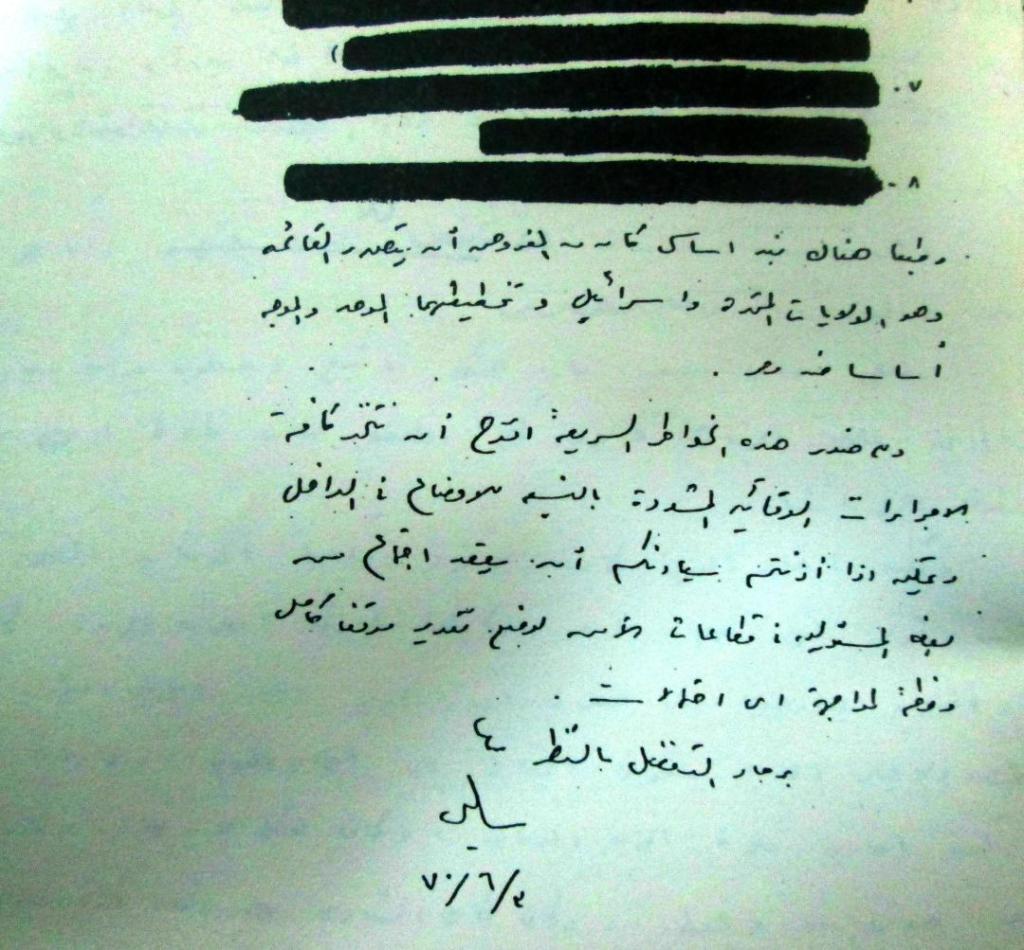 ٧-
٨-
وطبعا هناك بند اساسى كان من المفروض أن يتصدر القائمه
وهو الولايات المتحدة واسرائيل وتخطيطهما الموحد والموجه
أساسا ضد مصر .
وفى ضوء هذه الخواطر السريعة اقترح أن نتخذ كافة
الاجراءات الوقائيه المشددة بالنسبه للاوضاع فى الداخل
ويمكن اذا أذنتم سيادتكم أن يعقد اجتماع من
بعض المسئولين فى قطاعات الأمن لوضع تقدير موقف كامل
وخطة لمواجهة اى احتمالات .
برجاء التفضل بالنظر
سامى
٧٠/٦/٣